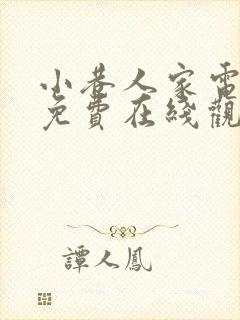 小巷人家電
免費在綫觀
譚人鳳